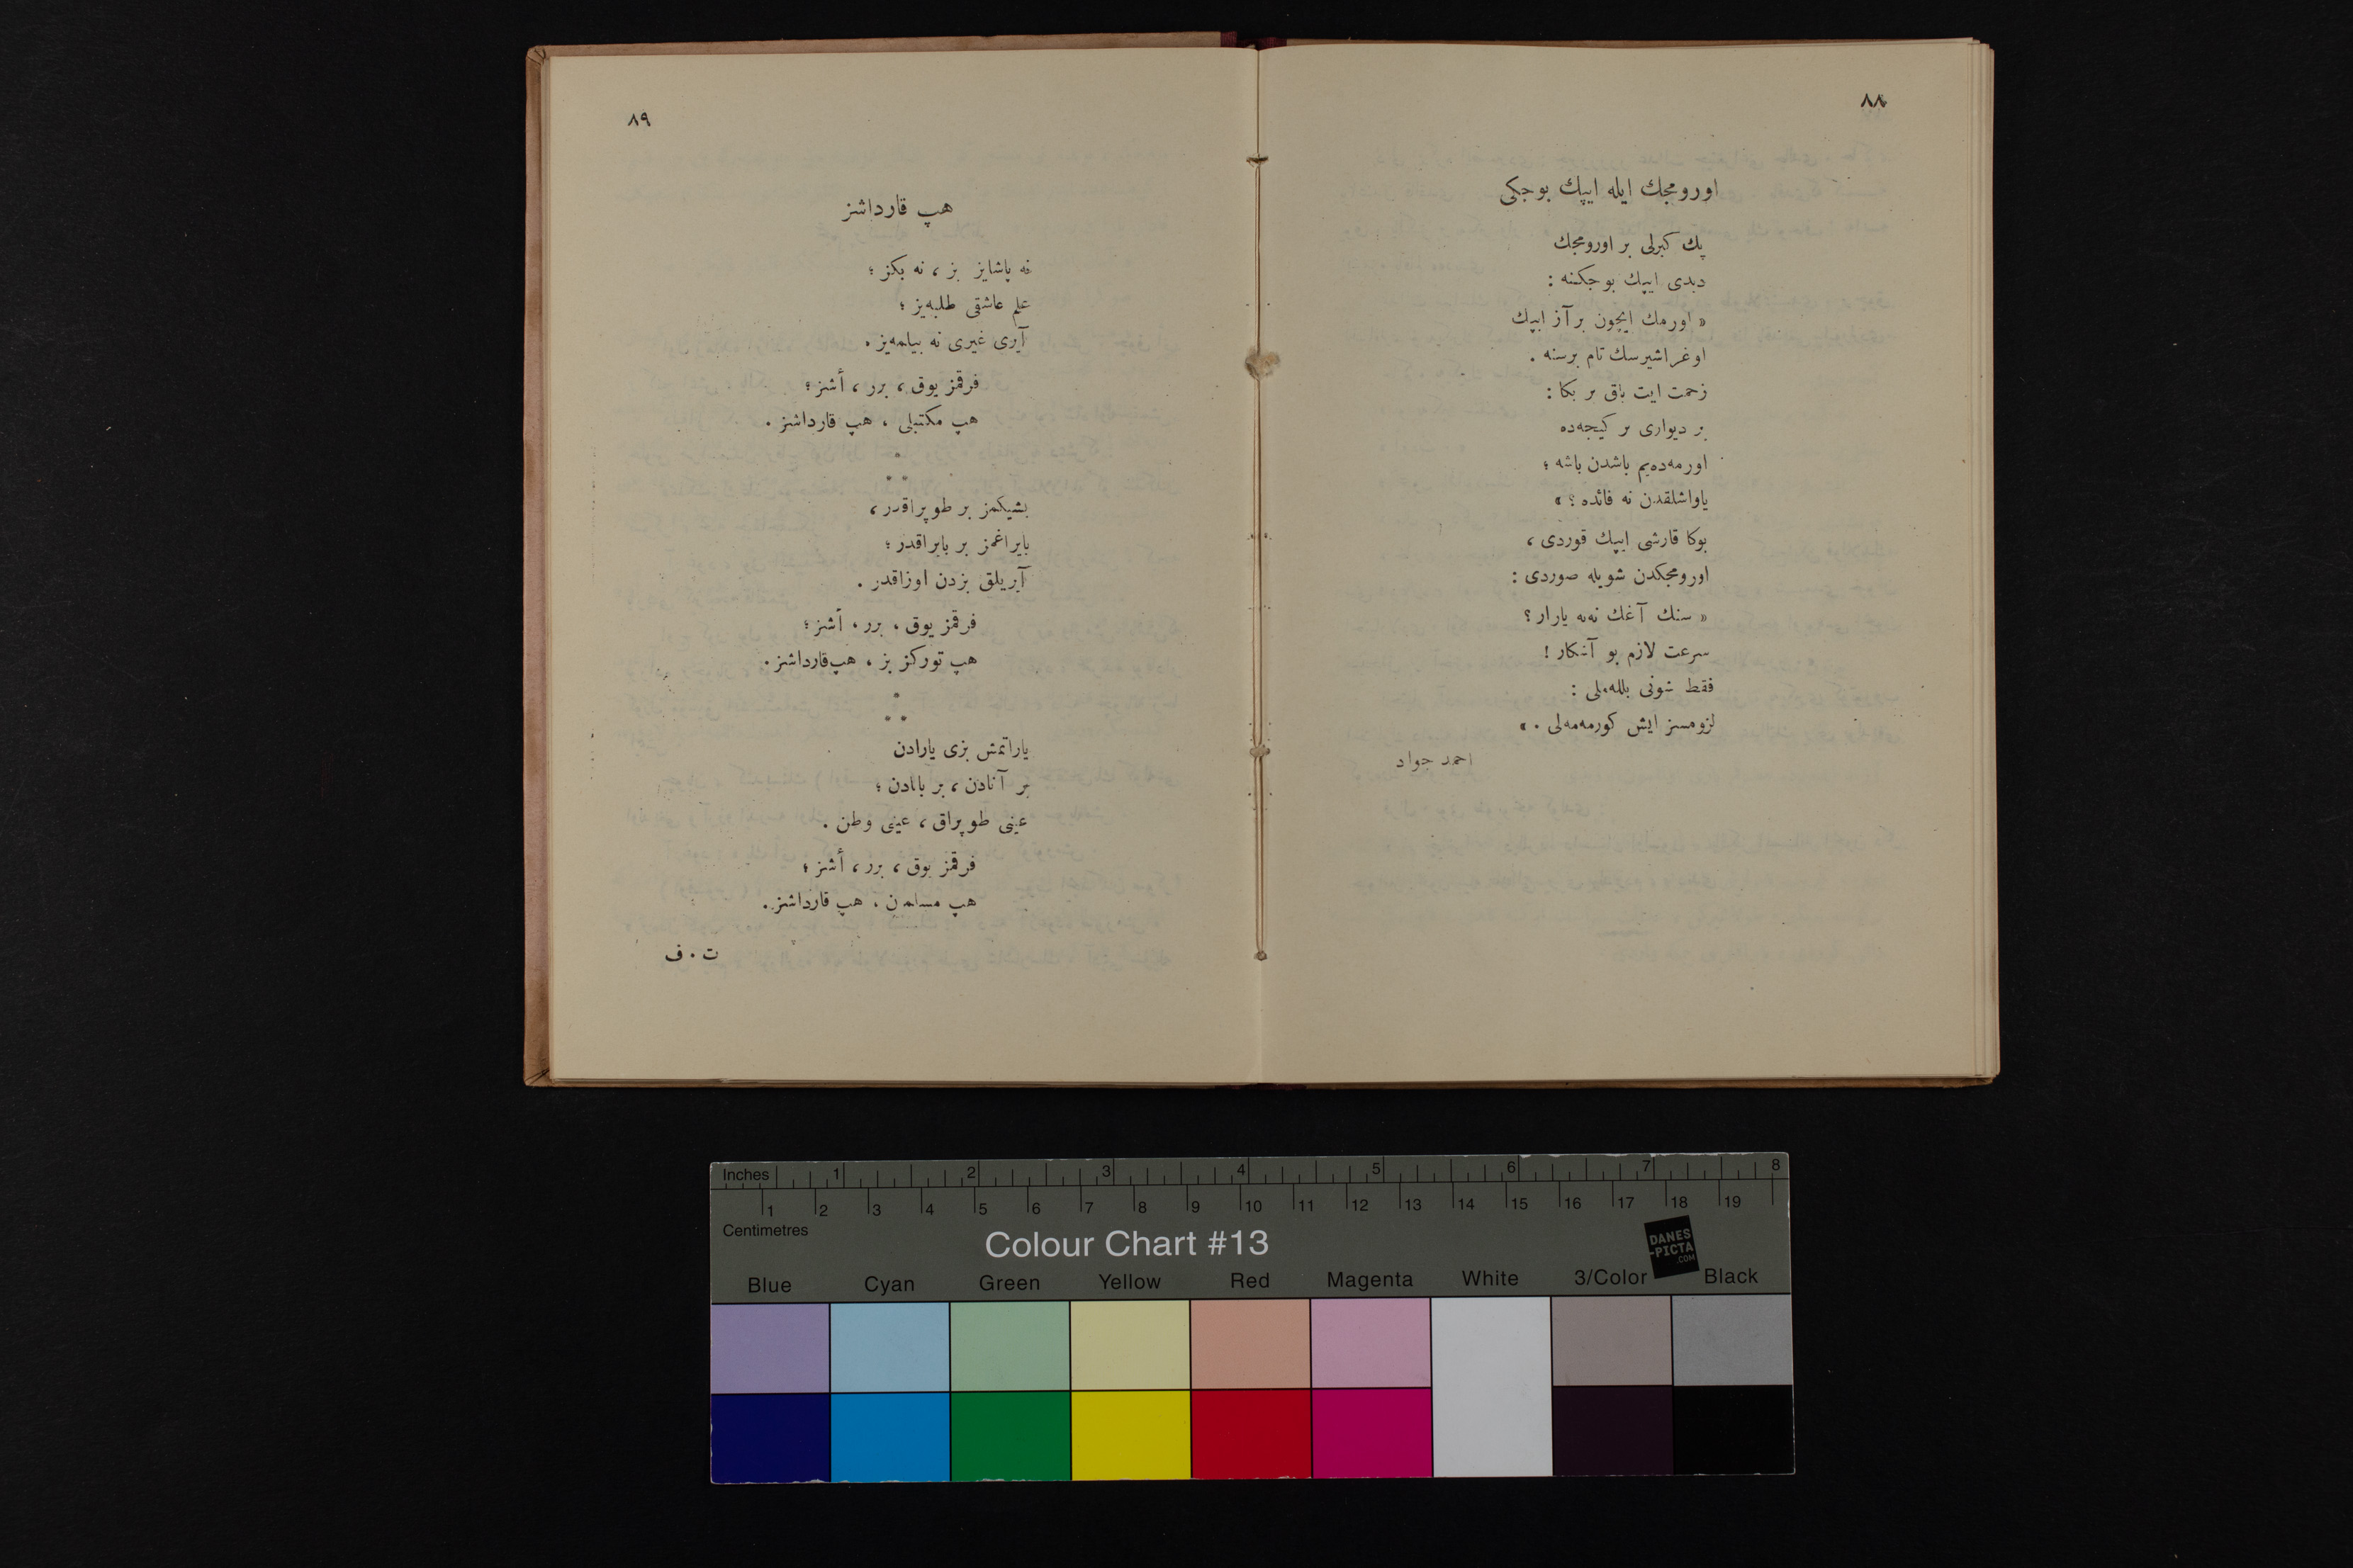 ٨٨
اورومجك ايله ايپك بوجكى
پك كبرلى بر اورومجك
ديدى ايپك بوجكنه :
« اورمك ايچون بر آز ايپك
اوغراشيرسك تام برسنه .
زحمت ايت باق بر بكا :
بر ديوارى بر كيجه‌ده
اورمه‌ده‌يم باشدن باشه ؛
ياواشلقدن نه فائده ؟ »
بوكا قارشى ايپك قوردى ،
اورومجكدن شويله صوردى :
« سنك آغك نه‌يه يارار ؟
سرعت لازم بو آشكار !
فقط شونى بللمه‌لى :
لزومسز ايش كورمه‌مه‌لى . »
احمد جواد
٨٩
هپ قارداشز
نه پاشايز بز ، نه بكز ؛
علم عاشقى طلبه‌يز ؛
آيرى غيرى نه بيلمه‌يز .
فرقمز يوق ، برر ، أشز ؛
هپ مكتبلى ، هپ قارداشز .
بشيكمز بر طوپراقدر ،
بايراغمز بر بايراقدر ؛
آيريلق بزدن اوزاقدر .
فرقمز يوق ، برر ، أشز ؛
هپ توركز بز ، هپ قارداشز .
ياراتمش بزى يارادن
بر آنادن ، بر بابادن ؛
عينى طوپراق ، عينى وطن .
فرقمز يوق ، برر ، أشز ؛
هپ مسلمان ، هپ قارداشز .
ت . ف
Inches 1 2 3 4 5 6 7 8
1 2 3 4 5 6 7 8 9 10 11 12 13 14 15 16 17 18 19
Centimetres
Colour Chart #13
DANES
-PICTA
.COM
Blue Cyan Green Yellow Red Magenta White 3/Color Black